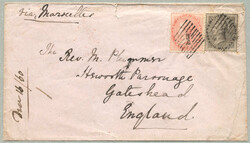 via Marseilles
The Rev. M. Plummer
Heworth Parsonage
Gateshead
England
Nov 16/60